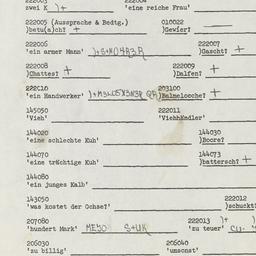 222003 222004
zwei K )+ 'eine reiche Frau'
222005 (Aussprache & Bedtg.) 010022
)betu(a)ch? + )Gewier?
222006
'ein armer Mann' )+S+M04A3R 222007
)Gascht? +
222008 222009
)Chattes? + )Dalfen? +
222010 203100
'ein Handwerker' )Balmelooche? +
145050 222011
'Vieh' 'Viehhändler'
144020 144030
'eine schlechte Kuh' )Boore?
144070 144073
'eine trächtige Kuh' )battersch? +
144080
'ein junges Kalb'
143050 222012
'was kostet der Ochse?' )schuckt
207080 222013 )+
'hundert Mark' ME30 S+UK 'zu teuer'
206030 206040
'zu billig' 'umsonst'